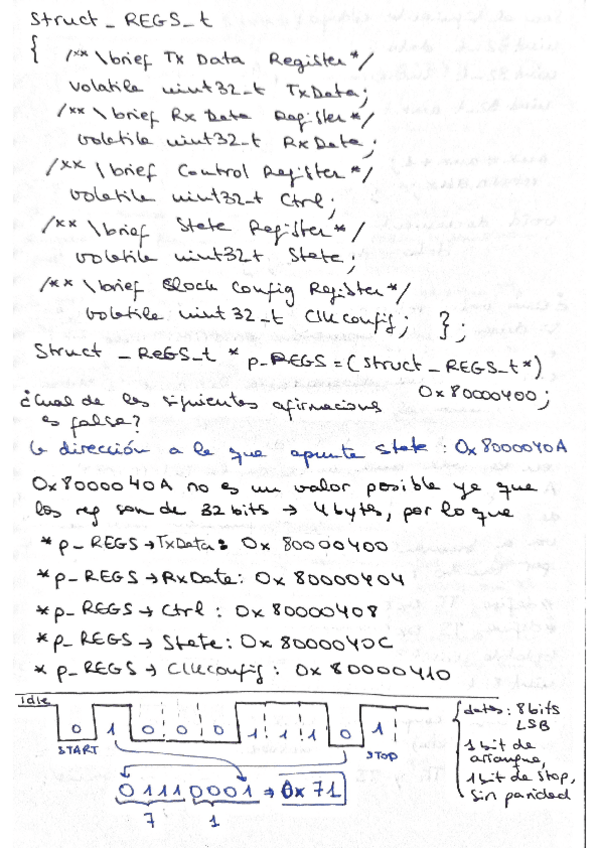 Struct _REGS_t
{ /** \brief Tx Data Register */
volatile uint32_t TxData;
/** \brief Rx Data Register */
volatile uint32_t RxData;
/** \brief Control Register */
volatile uint32_t Ctrl;
/** \brief State Register */
volatile uint32_t State;
/** \brief Clock Config Register */
volatile uint32_t ClkConfig; };
Struct _REGS_t * p_REGS = (struct _REGS_t*)
0x80000400;
¿Cual de las siguientes afirmaciones
es falsa?
↳ dirección a la que apunta state : 0x8000040A
0x8000040A no es un valor posible ya que
los reg son de 32 bits → 4 bytes, por lo que
* p_REGS → TxData : 0x 80000400
* p_REGS → RxData : 0x 80000404
* p_REGS → Ctrl : 0x 80000408
* p_REGS → State : 0x 8000040C
* p_REGS → ClkConfig : 0x 80000410
idle
0 1 0 0 0 1 1 1 0 1
START STOP
datos: 8 bits
LSB
1 bit de
arranque,
1 bit de stop,
sin paridad
01110001 → 0x 71
7 1